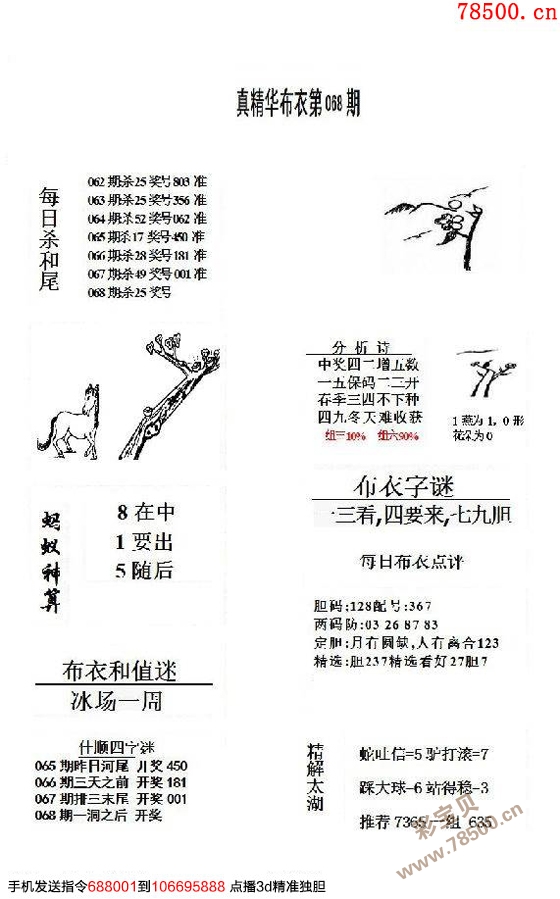 78500.cn
真精华布衣第068期
每日杀和尾
062期杀25奖号803准
063期杀25奖号356准
064期杀52奖号062准
065期杀17奖号450准
066期杀28奖号181准
067期杀49奖号001准
068期杀25奖号
分析诗
中奖四二增五数
一五保码二三开
春季三四不下种
四九冬天难收获
组三10% 组六90%
1燕为1,0形
花朵为0
蚂蚁神算
8在中
1要出
5随后
布衣字谜
一三看,四要来,七九胆
每日布衣点评
胆码:128配号:367
两码防:03 26 87 83
定胆:月有圆缺,人有离合123
精选:胆237精选看好27胆7
布衣和值迷
冰场一周
什顺四字谜
065期昨日河尾 开奖450
066期三天之前 开奖181
067期排三末尾 开奖001
068期一洞之后 开奖
精解太湖
蛇吐信=5 驴打滚=7
踩大球-6 站得稳-3
推荐 7365一组 635
彩宝贝
www.78500.cn
手机发送指令688001到106695888 点播3d精准独胆